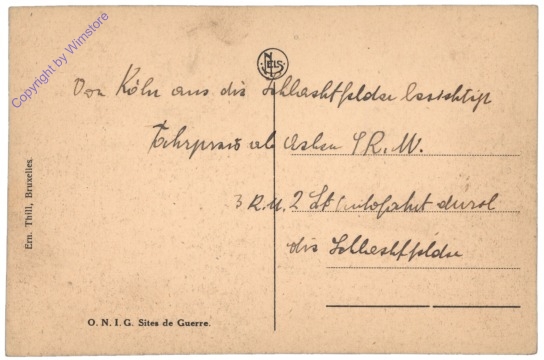 Copyright by Wimstore
NELS
Von Köln aus die Schlachtfelder besichtigt
Fahrpreis ab Achen 9 R.M.
3 R.M. 2 St Autofahrt durch
die Schlachtfelder
Ern. Thill, Bruxelles.
O. N. I. G. Sites de Guerre.